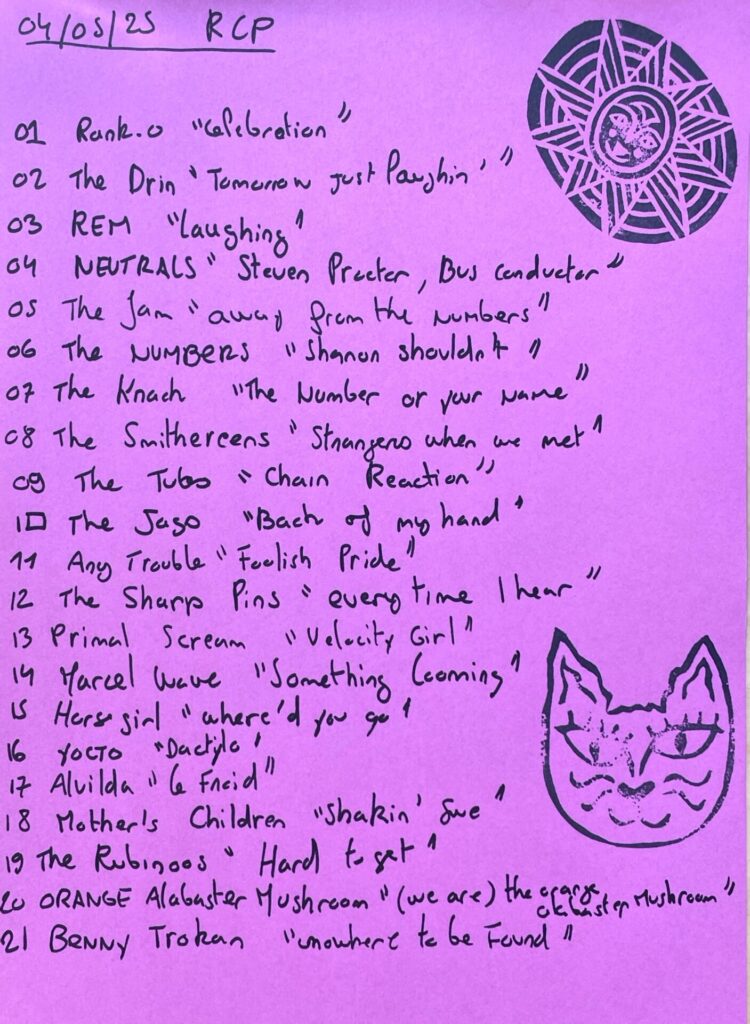 04/05/25 RCP
01 Rank.o "Celebration"
02 The Drin "Tomorrow just laughin'"
03 REM "laughing"
04 NEUTRALS "Steven Procter, Bus conductor"
05 The Jam "away from the numbers"
06 The NUMBERS "Shanon shouldn't"
07 The Knack "The Number or your name"
08 The Smithereens "Strangers when we met"
09 The Tubs "Chain Reaction"
10 The Jags "Back of my hand"
11 Any Trouble "Foolish Pride"
12 The Sharp Pins "every time I hear"
13 Primal Scream "Velocity Girl"
14 Marcel Wave "Something Looming"
15 Horsegirl "where'd you go"
16 YOCTO "Dactylo"
17 Alvilda "Le Froid"
18 Mother's Children "Shakin' Sue"
19 The Rubinoos "Hard to get"
20 ORANGE Alabaster Mushroom "(we are) the orange alabaster Mushroom"
21 Benny Trokan "nowhere to be Found"